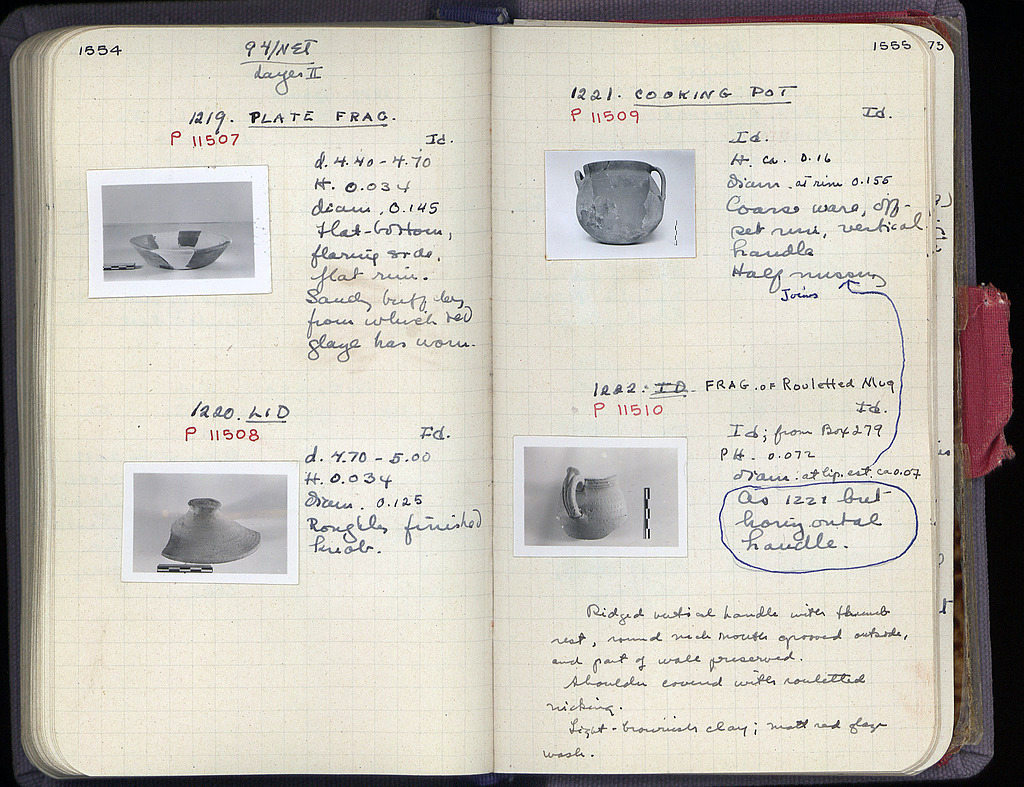 1554
94/NET
Layer II
1219. PLATE FRAG.
P 11507
Id.
d. 4.40 - 4.70
H. 0.034
diam. 0.145
Flat-bottom,
flaring side,
flat rim.
Sandy buff clay
from which red
glaze has worn.
1220. LID
P 11508
Id.
d. 4.70 - 5.00
H. 0.034
Diam. 0.125
Roughly finished
knob.
1555
75
1221. COOKING POT
P 11509
Id.
Id.
H. ca. 0.16
Diam. at rim 0.155
Coarse ware, off-
set rim, vertical
handle
Half missing
Joins
1222. ID FRAG. OF Rouletted Mug
P 11510
Id.
Id; from Box 279
PH. 0.072
Diam. at lip. est. ca 0.07
As 1221 but
horizontal
handle.
Ridged vertical handle with thumb
rest, round neck mouth grooved outside,
and part of wall preserved.
Shoulder covered with rouletted
nicking.
Light-brownish clay; matt red glaze
wash.